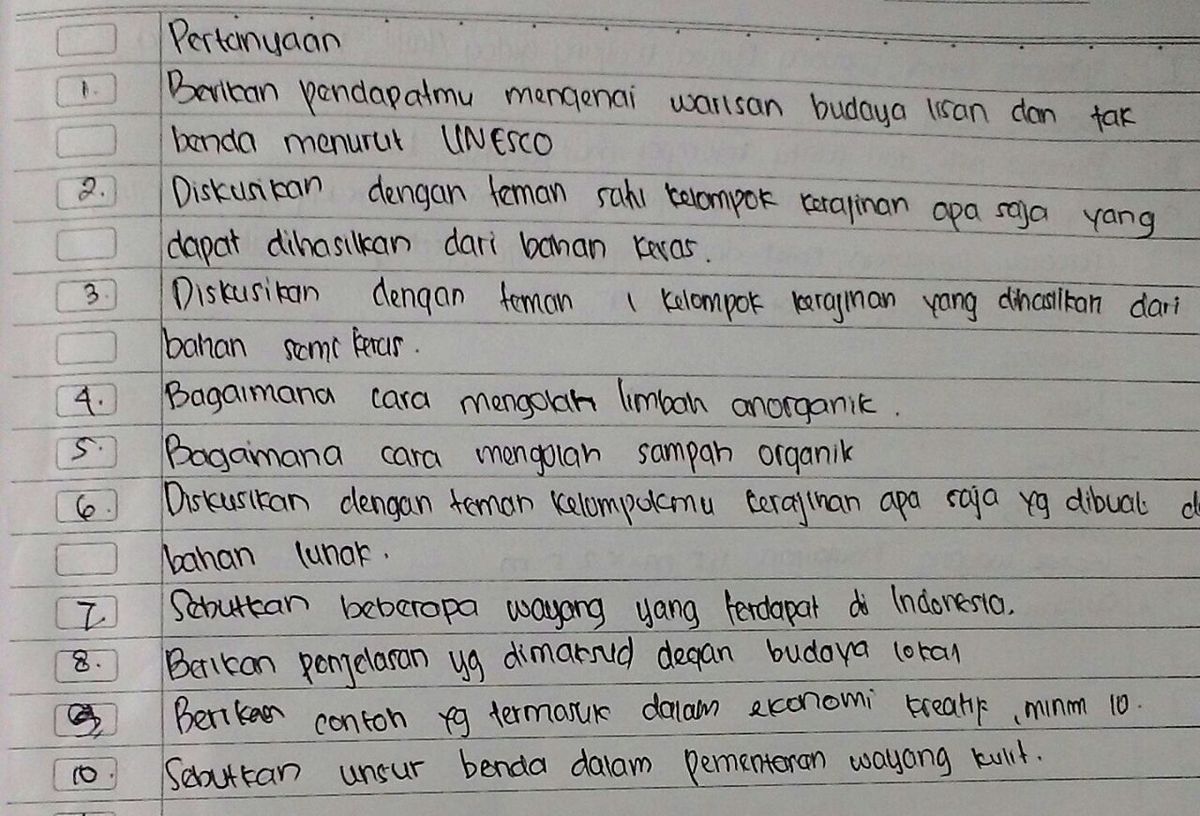 Pertanyaan
1. Berikan pendapatmu mengenai warisan budaya lisan dan tak
benda menurut UNESCO
2. Diskusikan dengan teman satu kelompok kerajinan apa saja yang
dapat dihasilkan dari bahan keras.
3. Diskusikan dengan teman 1 kelompok kerajinan yang dihasilkan dari
bahan semi keras.
4. Bagaimana cara mengolah limbah anorganik.
5. Bagaimana cara mengolah sampah organik
6. Diskusikan dengan teman kelompokmu kerajinan apa saja yg dibuat d
bahan lunak.
7. Sebutkan beberapa wayang yang terdapat di Indonesia.
8. Berikan penjelasan yg dimaksud degan budaya lokal
9. Berikan contoh yg termasuk dalam ekonomi kreatif, minm 10.
10. Sebutkan unsur benda dalam pementasan wayang kulit.